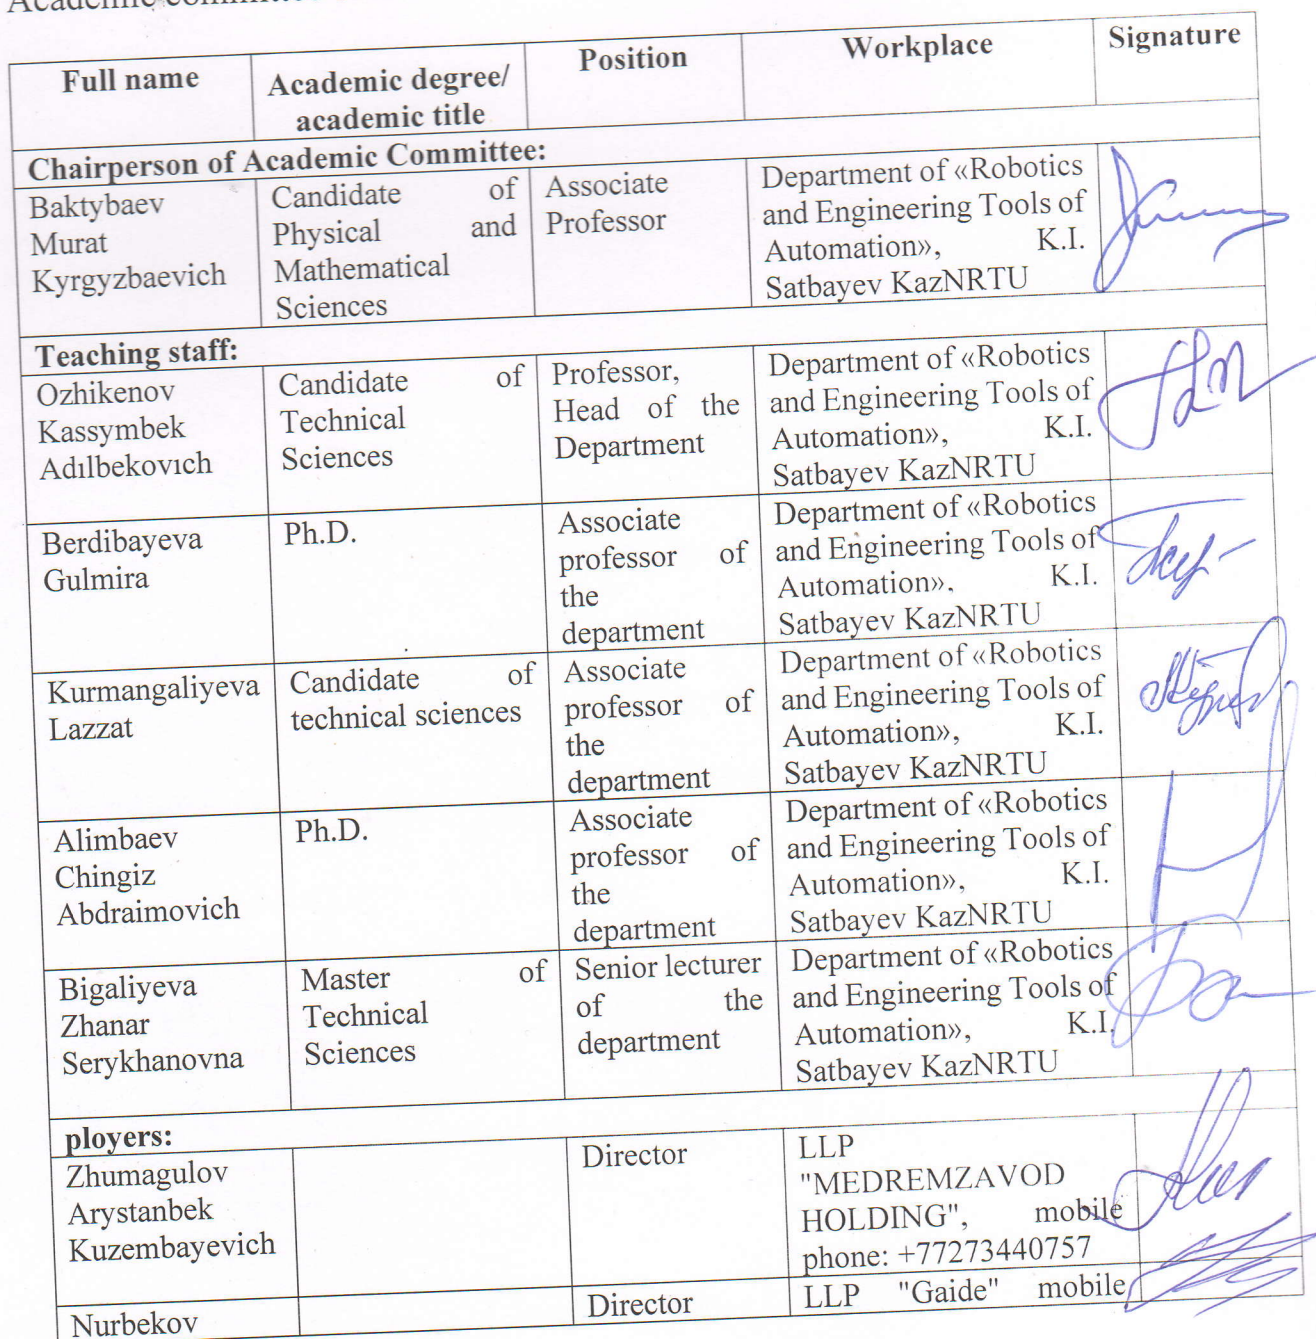 Academic
Full name
Academic degree/
academic title
Position
Workplace
Signature
Chairperson of Academic Committee:
Baktybaev
Murat
Kyrgyzbaevich
Candidate of
Physical and
Mathematical
Sciences
Associate
Professor
Department of «Robotics
and Engineering Tools of
Automation», K.I.
Satbayev KazNRTU
Teaching staff:
Ozhikenov
Kassymbek
Adılbekovıch
Candidate of
Technical
Sciences
Professor,
Head of the
Department
Department of «Robotics
and Engineering Tools of
Automation», K.I.
Satbayev KazNRTU
Berdibayeva
Gulmira
Ph.D.
Associate
professor of
the
department
Department of «Robotics
and Engineering Tools of
Automation», K.I.
Satbayev KazNRTU
Kurmangaliyeva
Lazzat
Candidate of
technical sciences
Associate
professor of
the
department
Department of «Robotics
and Engineering Tools of
Automation», K.I.
Satbayev KazNRTU
Alimbaev
Chingiz
Abdraimovich
Ph.D.
Associate
professor of
the
department
Department of «Robotics
and Engineering Tools of
Automation», K.I.
Satbayev KazNRTU
Bigaliyeva
Zhanar
Serykhanovna
Master of
Technical
Sciences
Senior lecturer
of the
department
Department of «Robotics
and Engineering Tools of
Automation», K.I.
Satbayev KazNRTU
ployers:
Zhumagulov
Arystanbek
Kuzembayevich
Director
LLP
"MEDREMZAVOD
HOLDING", mobile
phone: +77273440757
Nurbekov
Director
LLP "Gaide" mobile